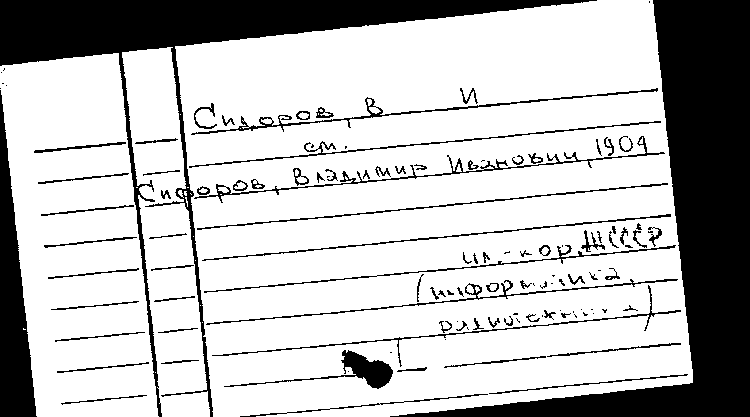 Сидоров, В И
см.
Сифоров, Владимир Иванович, 1904
чл.-кор. АН СССР
(информатика,
радиотехника)